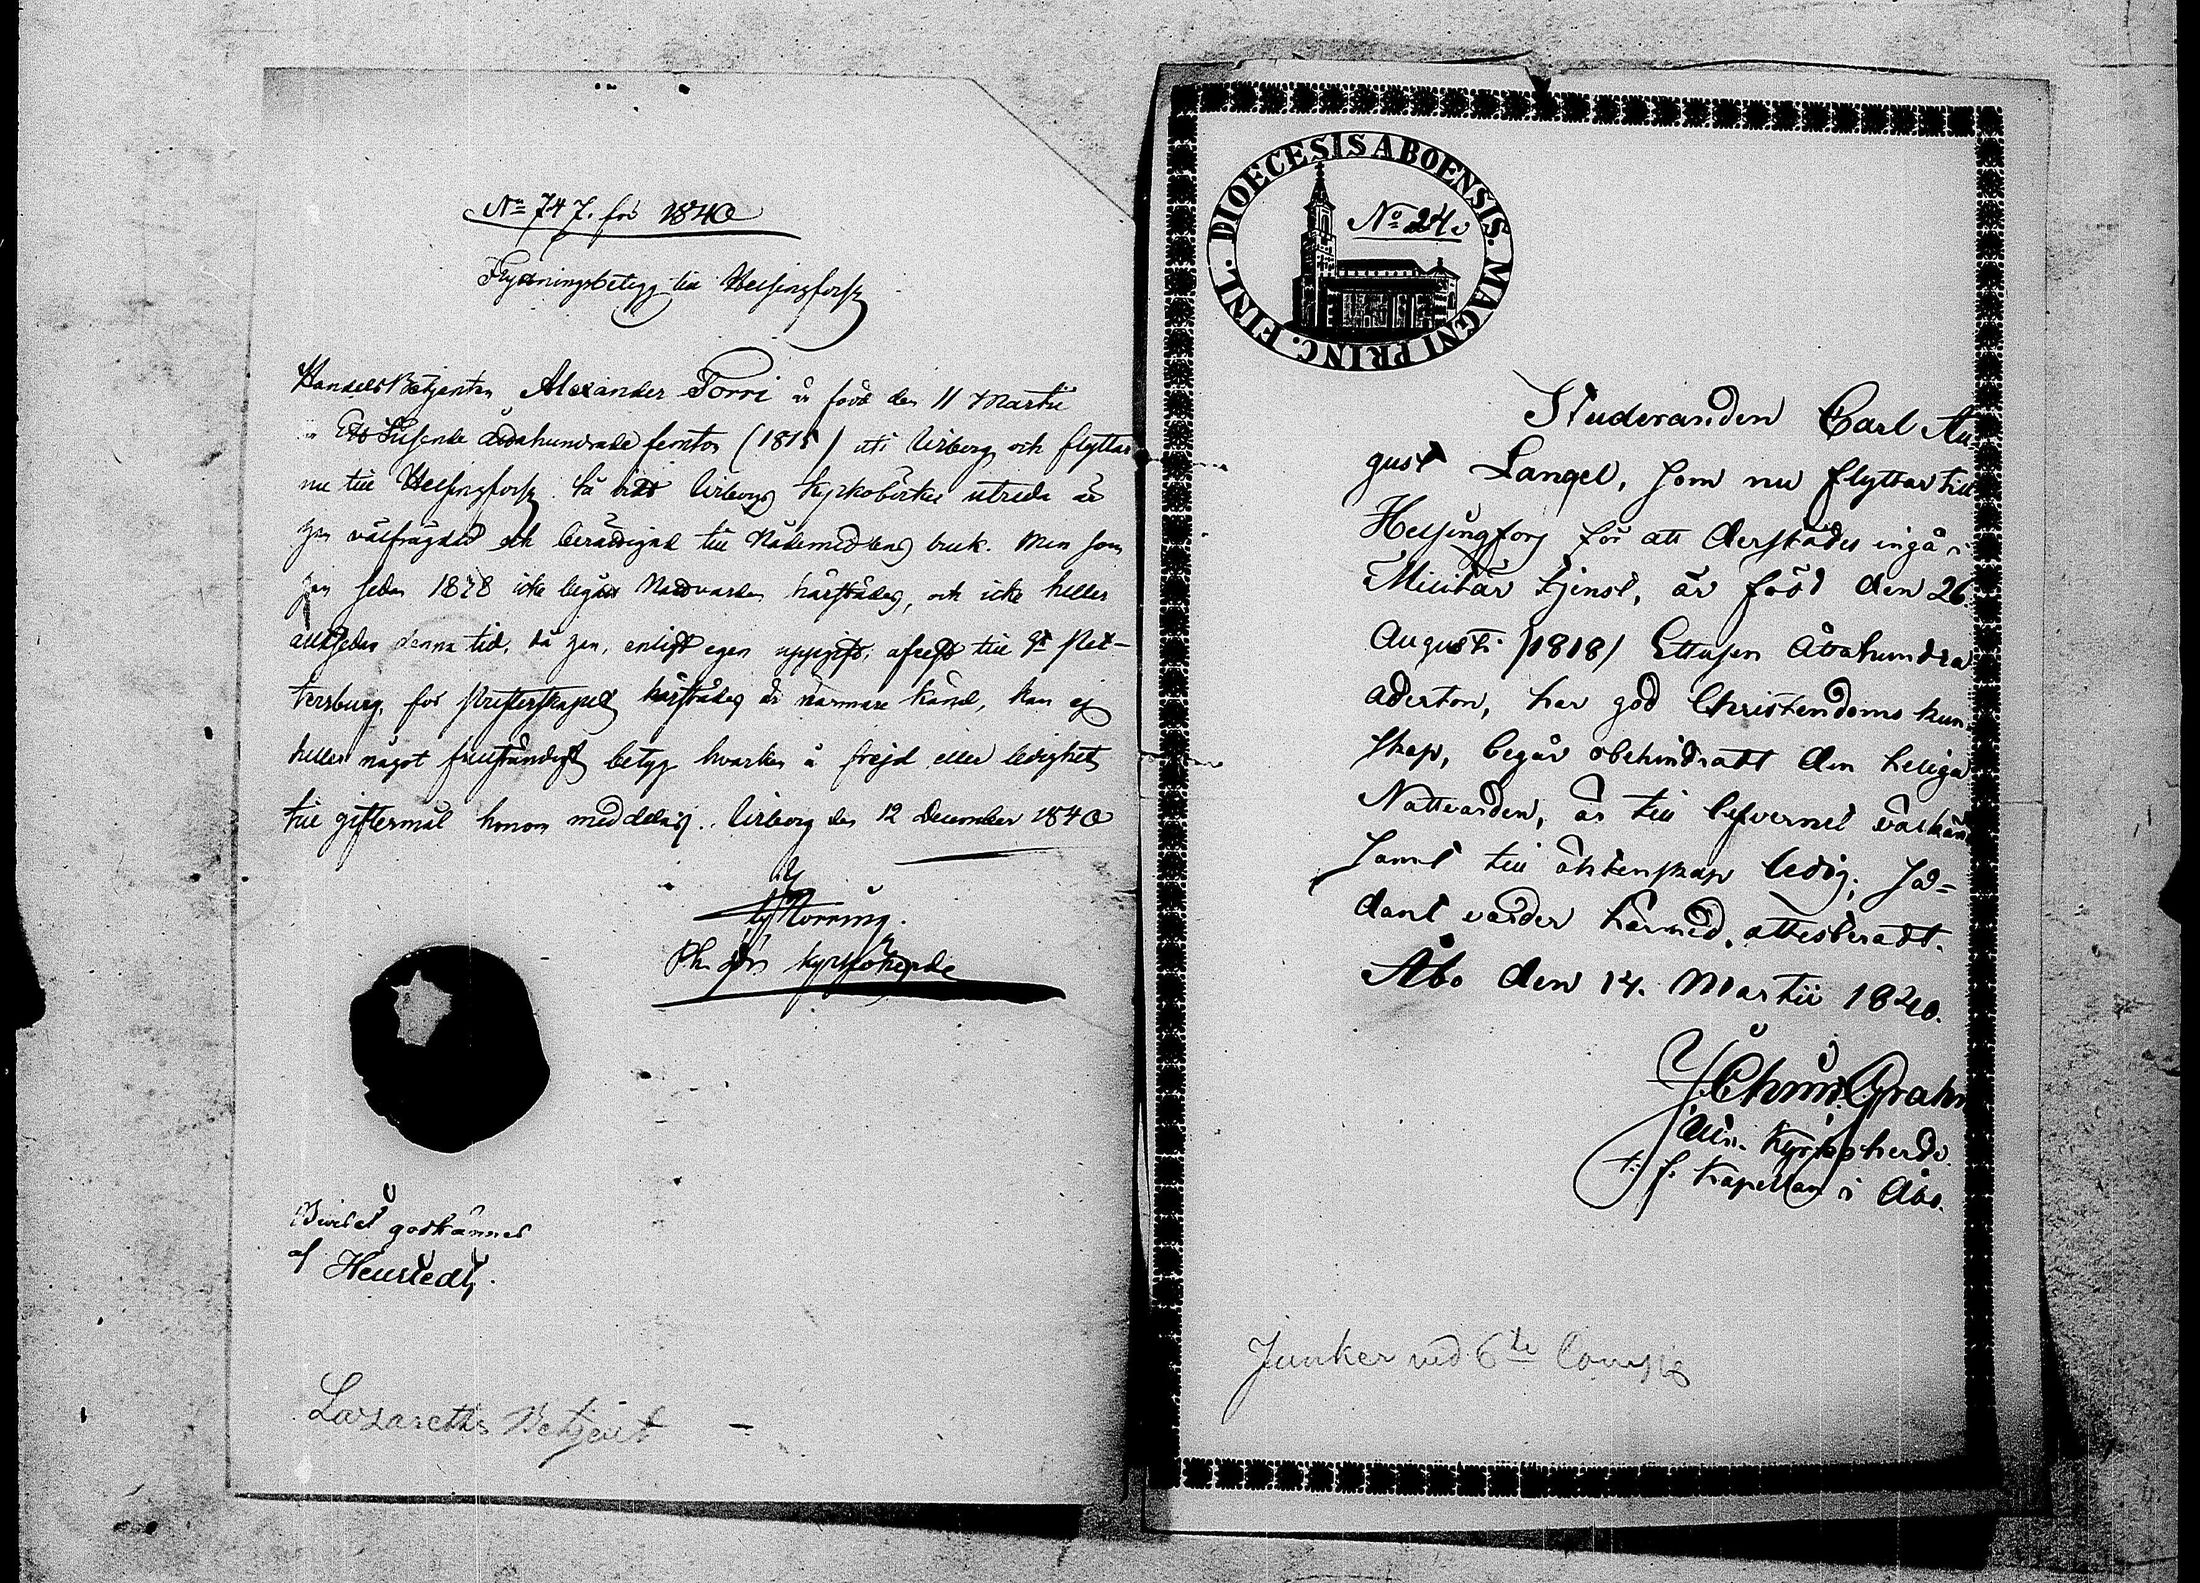 No 747. för 1840
Flyttningsbetyg till Helsingfors
HandelsBetjenten Alexander Torri är född den 11 Martii
Ett Tusende Åttahundrade femton (1815) uti Wiborg och flyttar
nu till Helsingfors. Så vidt Wiborgs Kyrkoböcker utreda är
han välfrägdad och berättigad till Nådemedlens bruk. Men som
han sedan 1828 icke begått Nattvarden härstädes, och icke heller
alltsedan denna tid, då han, enligt egen uppgift, afrest till St Pet-
tersburg, för Presterskapet härstädes är närmare känd, kan ej
heller något fullständigt betyg hvarken å frejd eller ledighet
till giftermål honom meddelas. Wiborg den 12 December 1840
Kyrkoherde
godkännes
af
Lazaretts Betjent
DIOECESIS ABOENSIS. MAGNI PRINC. FINL.
No 24.
Studeranden Carl Au-
gust Langel, som nu flyttar till
Helsingfors för att derstädes ingå i
Militär tjenst, är född den 26
Augusti (1818) Ettusen Åttahundra
aderton, har god Christendoms kun-
skap, begår obehindradt den heliga
Nattvarden, är till lefvernet välkänd
samt till äktenskap ledig; så-
dant varder härmed attesteradt.
Åbo den 14. Martii 1840.
Grahn
Kyrkoherde.
t. f. Kapellan i Åbo.
Junker vid 6te Compie